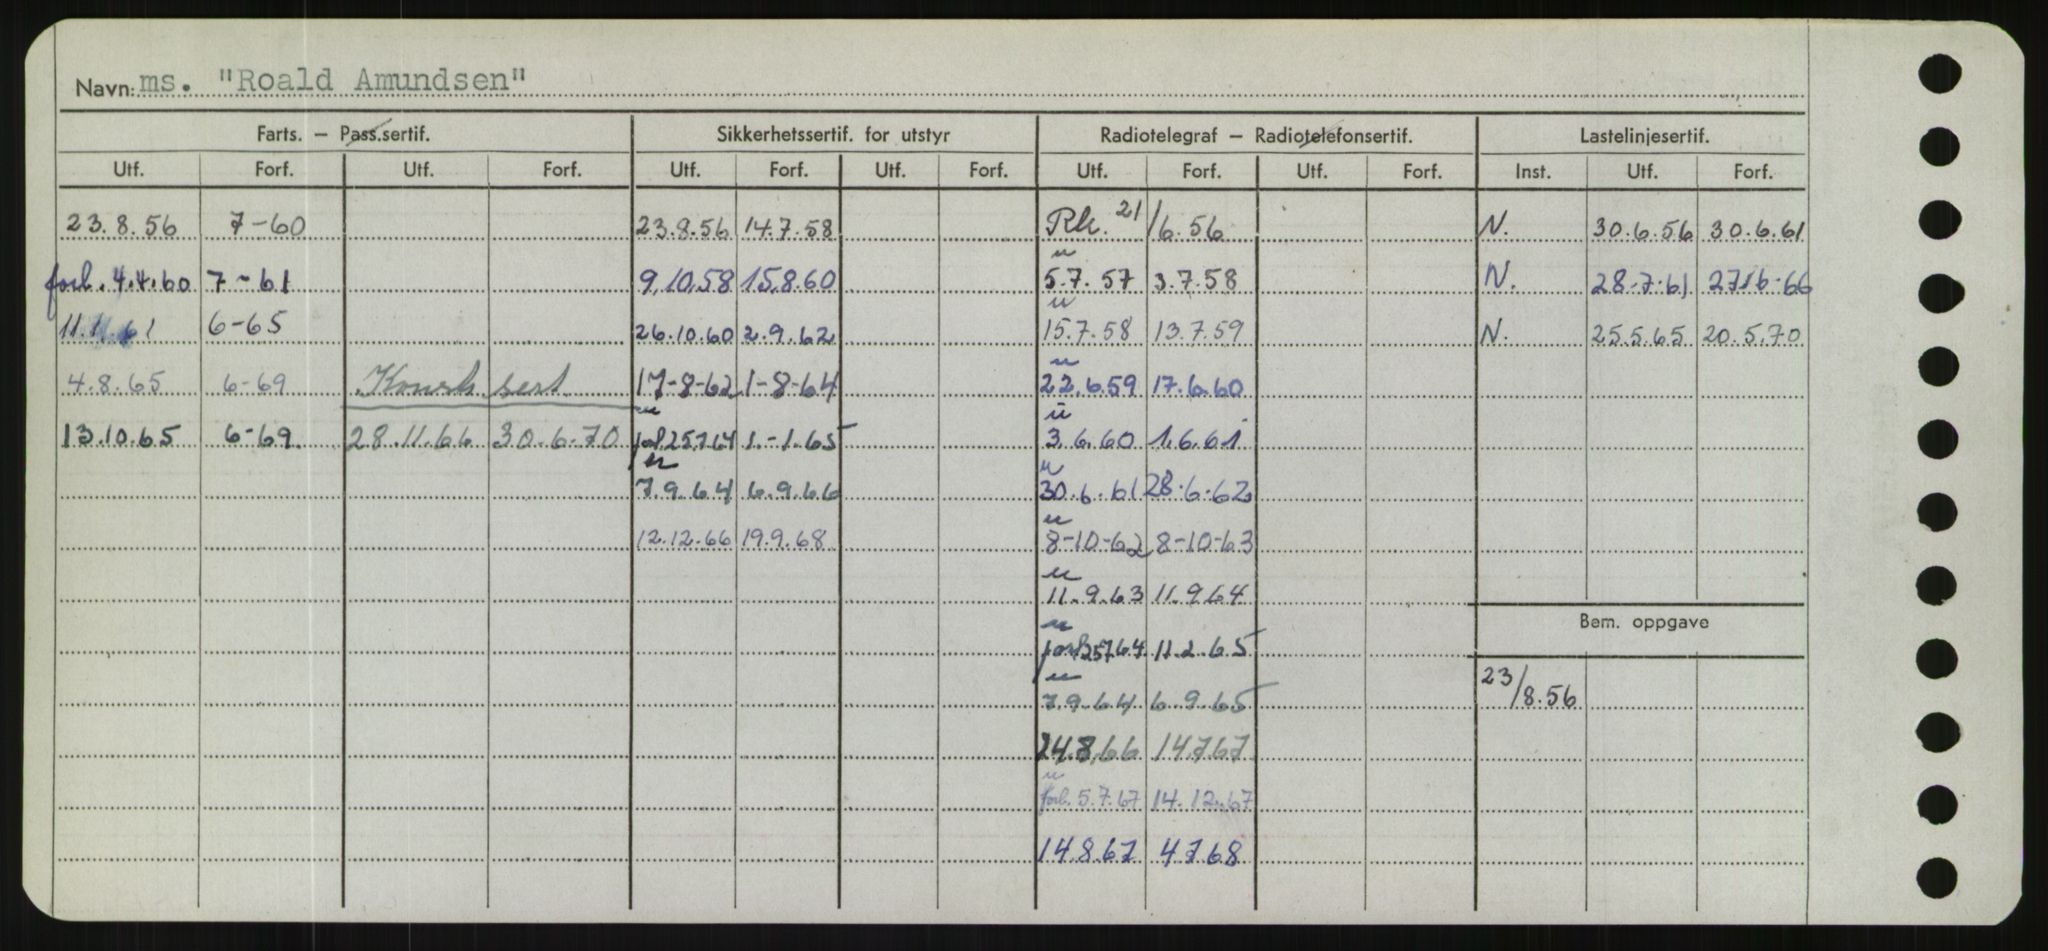 Navn: ms. "Roald Amundsen"
Farts. – Pass.sertif. Sikkerhetssertif. for utstyr Radiotelegraf – Radiotelefonsertif. Lastelinjesertif.
Utf. Forf. Utf. Forf. Utf. Forf. Utf. Forf. Utf. Forf. Utf. Forf. Inst. Utf. Forf.
23.8.56 7-60 23.8.56 14.7.58 Rk. 21/6.56 N. 30.6.56 30.6.61
u
forl. 4.4.60 7-61 9.10.58 15.8.60 5.7.57 3.7.58 N. 28-7-61 27/6-66
u
11.1.61 6-65 26.10.60 2.9.62 15.7.58 13.7.59 N. 25.5.65 20.5.70
u
4.8.65 6-69 sert. 17-8-62 1-8-64 22.6.59 17.6.60
u u
13.10.65 6-69. 28.11.66 30.6.70 forl. 25.7.64 1.-1.65 3.6.60 1.6.61
u u
7.9.64 6.9.66 30.6.61 28.6-62
u
12.12.66 19.9.68 8-10-62 8-10-63
u
11.9.63 11.9.64
Bem. oppgave
u
forl. 25.7.64 11.2.65
u
7.9.64 6.9.65 23/8.56
24.8.66 14.7.67
u
forl. 5.7.67 14.12.67
14.8.67 4.7.68